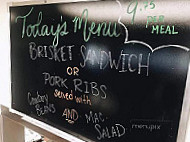 Today's Menu
9.75
PER
MEAL
BRISKET SANDWICH
OR
PORK RIBS
served with
Cowboy
BEANS
AND
MAC.
SALAD
menupix